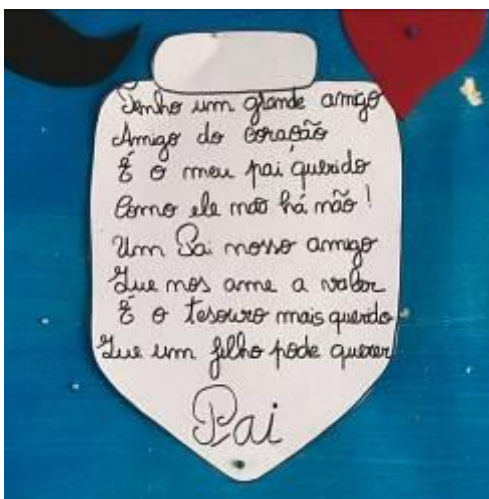 Tenho um grande amigo
Amigo do coração
É o meu pai querido
Como ele não há não!
Um Pai nosso amigo
Que nos ame a valer
É o tesouro mais querido
Que um filho pode querer
Pai